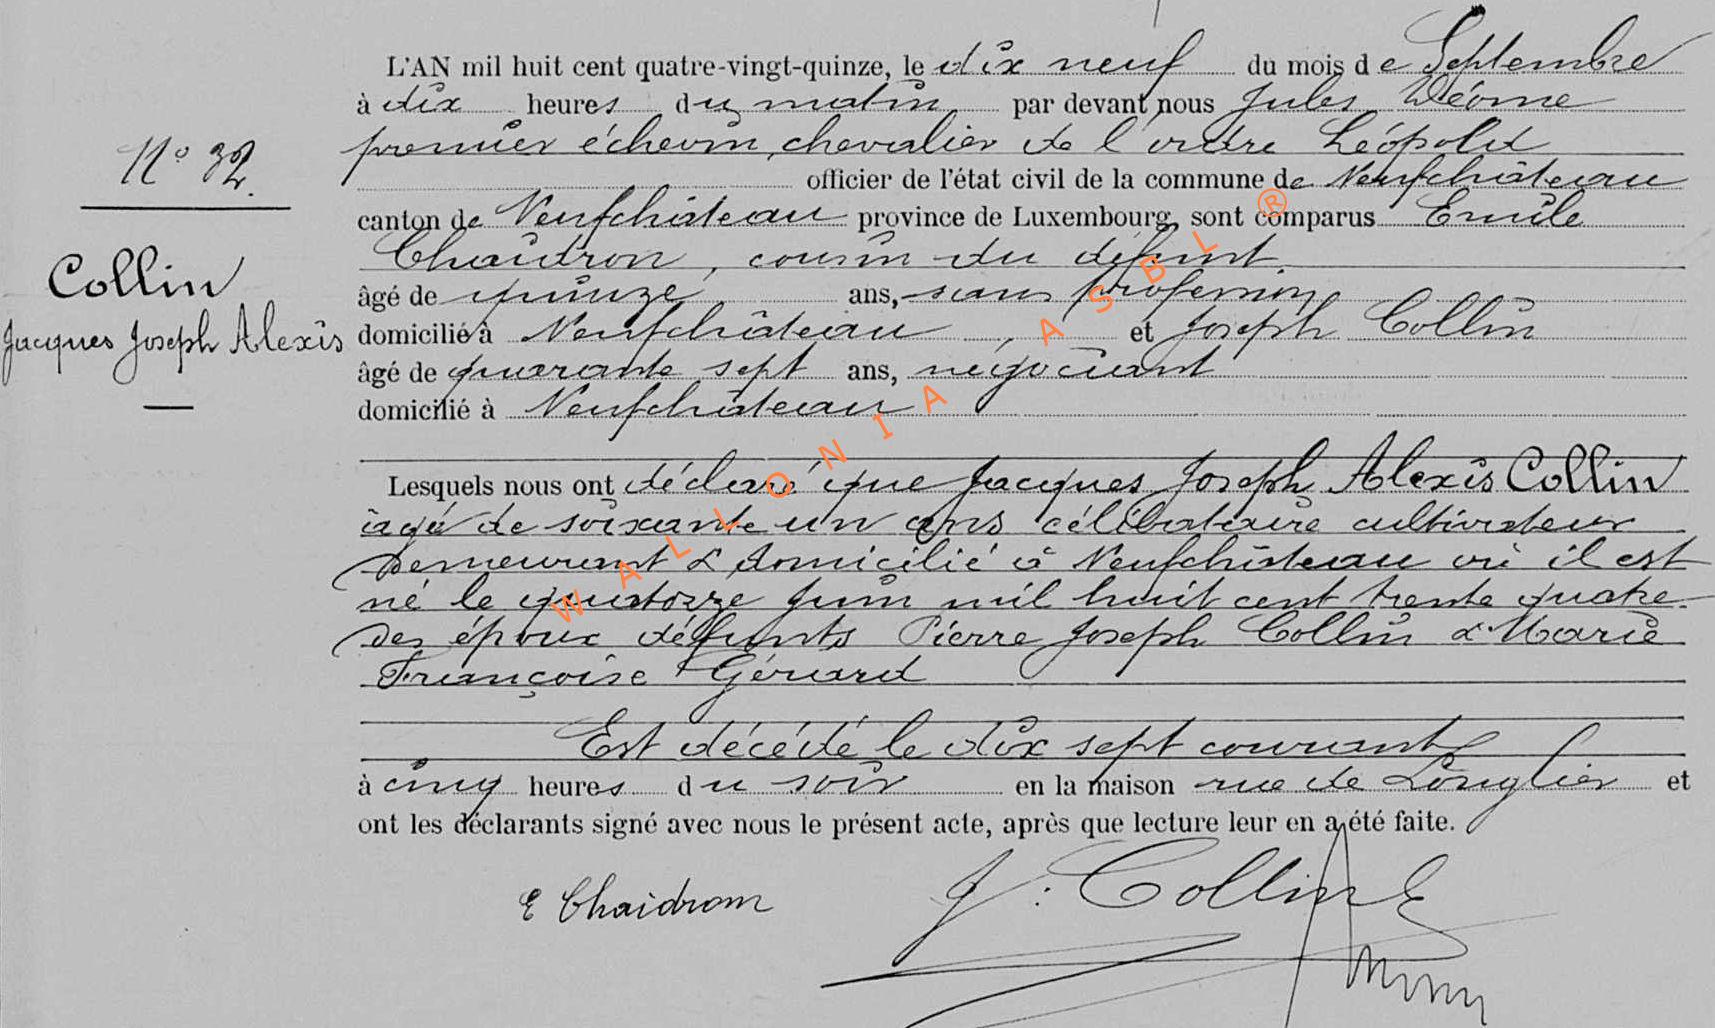 L'AN mil huit cent quatre-vingt-quinze, le dix neuf du mois de Septembre
à dix heures du matin par devant nous Jules
premier échevin, chevalier de l'ordre Léopold
officier de l'état civil de la commune de Neufchâteau
canton de Neufchâteau province de Luxembourg, sont comparus Emile
Chaidron, cousin du défunt.
âgé de quinze ans, sans profession
domicilié à Neufchâteau, et Joseph Collin
âgé de quarante sept ans, négociant
domicilié à Neufchâteau
N° 32.
Collin
Jacques Joseph Alexis
Lesquels nous ont déclaré que Jacques Joseph Alexis Collin
âgé de soixante un ans célibataire cultivateur
demeurant & domicilié à Neufchâteau où il est
né le quatorze juin mil huit cent trente quatre
des époux défunts Pierre Joseph Collin & Marie
Françoise Gérard
Est décédé le dix sept courant
à cinq heures du soir en la maison rue de Longlier et
ont les déclarants signé avec nous le présent acte, après que lecture leur en a été faite.
E Chaidron J. Collin
WALLONIA ASBL ®